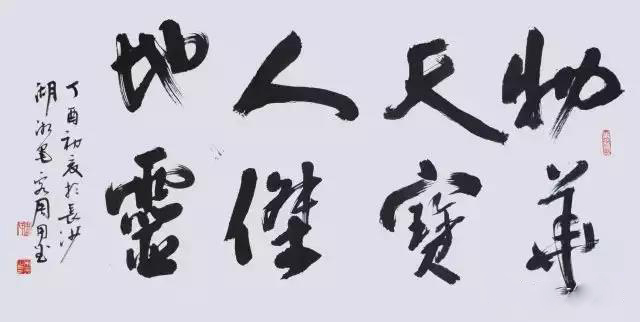 物華
天寶
人傑
地靈
丁酉初夏於長沙
湖湘墨客周用金書